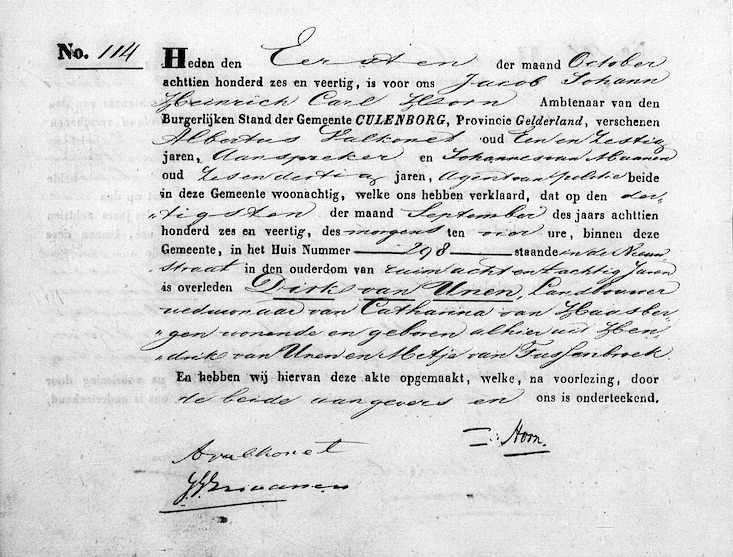 No. 114
Heden den Eersten der maand October
achttien honderd zes en veertig, is voor ons Jacob Johann
Heinrich Carl Hoorn Ambtenaar van den
Burgerlijken Stand der Gemeente CULENBORG, Provincie Gelderland, verschenen
Albertus Valkonet oud Een en Zestig
jaren, Aanspreker en Johannes van Maanen
oud Zes en dertig jaren, Agent van politie beide
in deze Gemeente woonachtig, welke ons hebben verklaard, dat op den der-
tigsten der maand September des jaars achttien
honderd zes en veertig, des morgens ten vier ure, binnen deze
Gemeente, in het Huis Nummer 298 staande in de Nieuw
straat in den ouderdom van ruim acht en tachtig Jaren
is overleden Dirk van Unen, Landbouwer
weduwnaar van Catharina van Haasber-
gen wonende en geboren alhier uit Hen-
drik van Unen en Metje van Tussenbroek
En hebben wij hiervan deze akte opgemaakt, welke, na voorlezing, door
de beide aangevers en ons is onderteekend.
Hoorn.
A valkonet